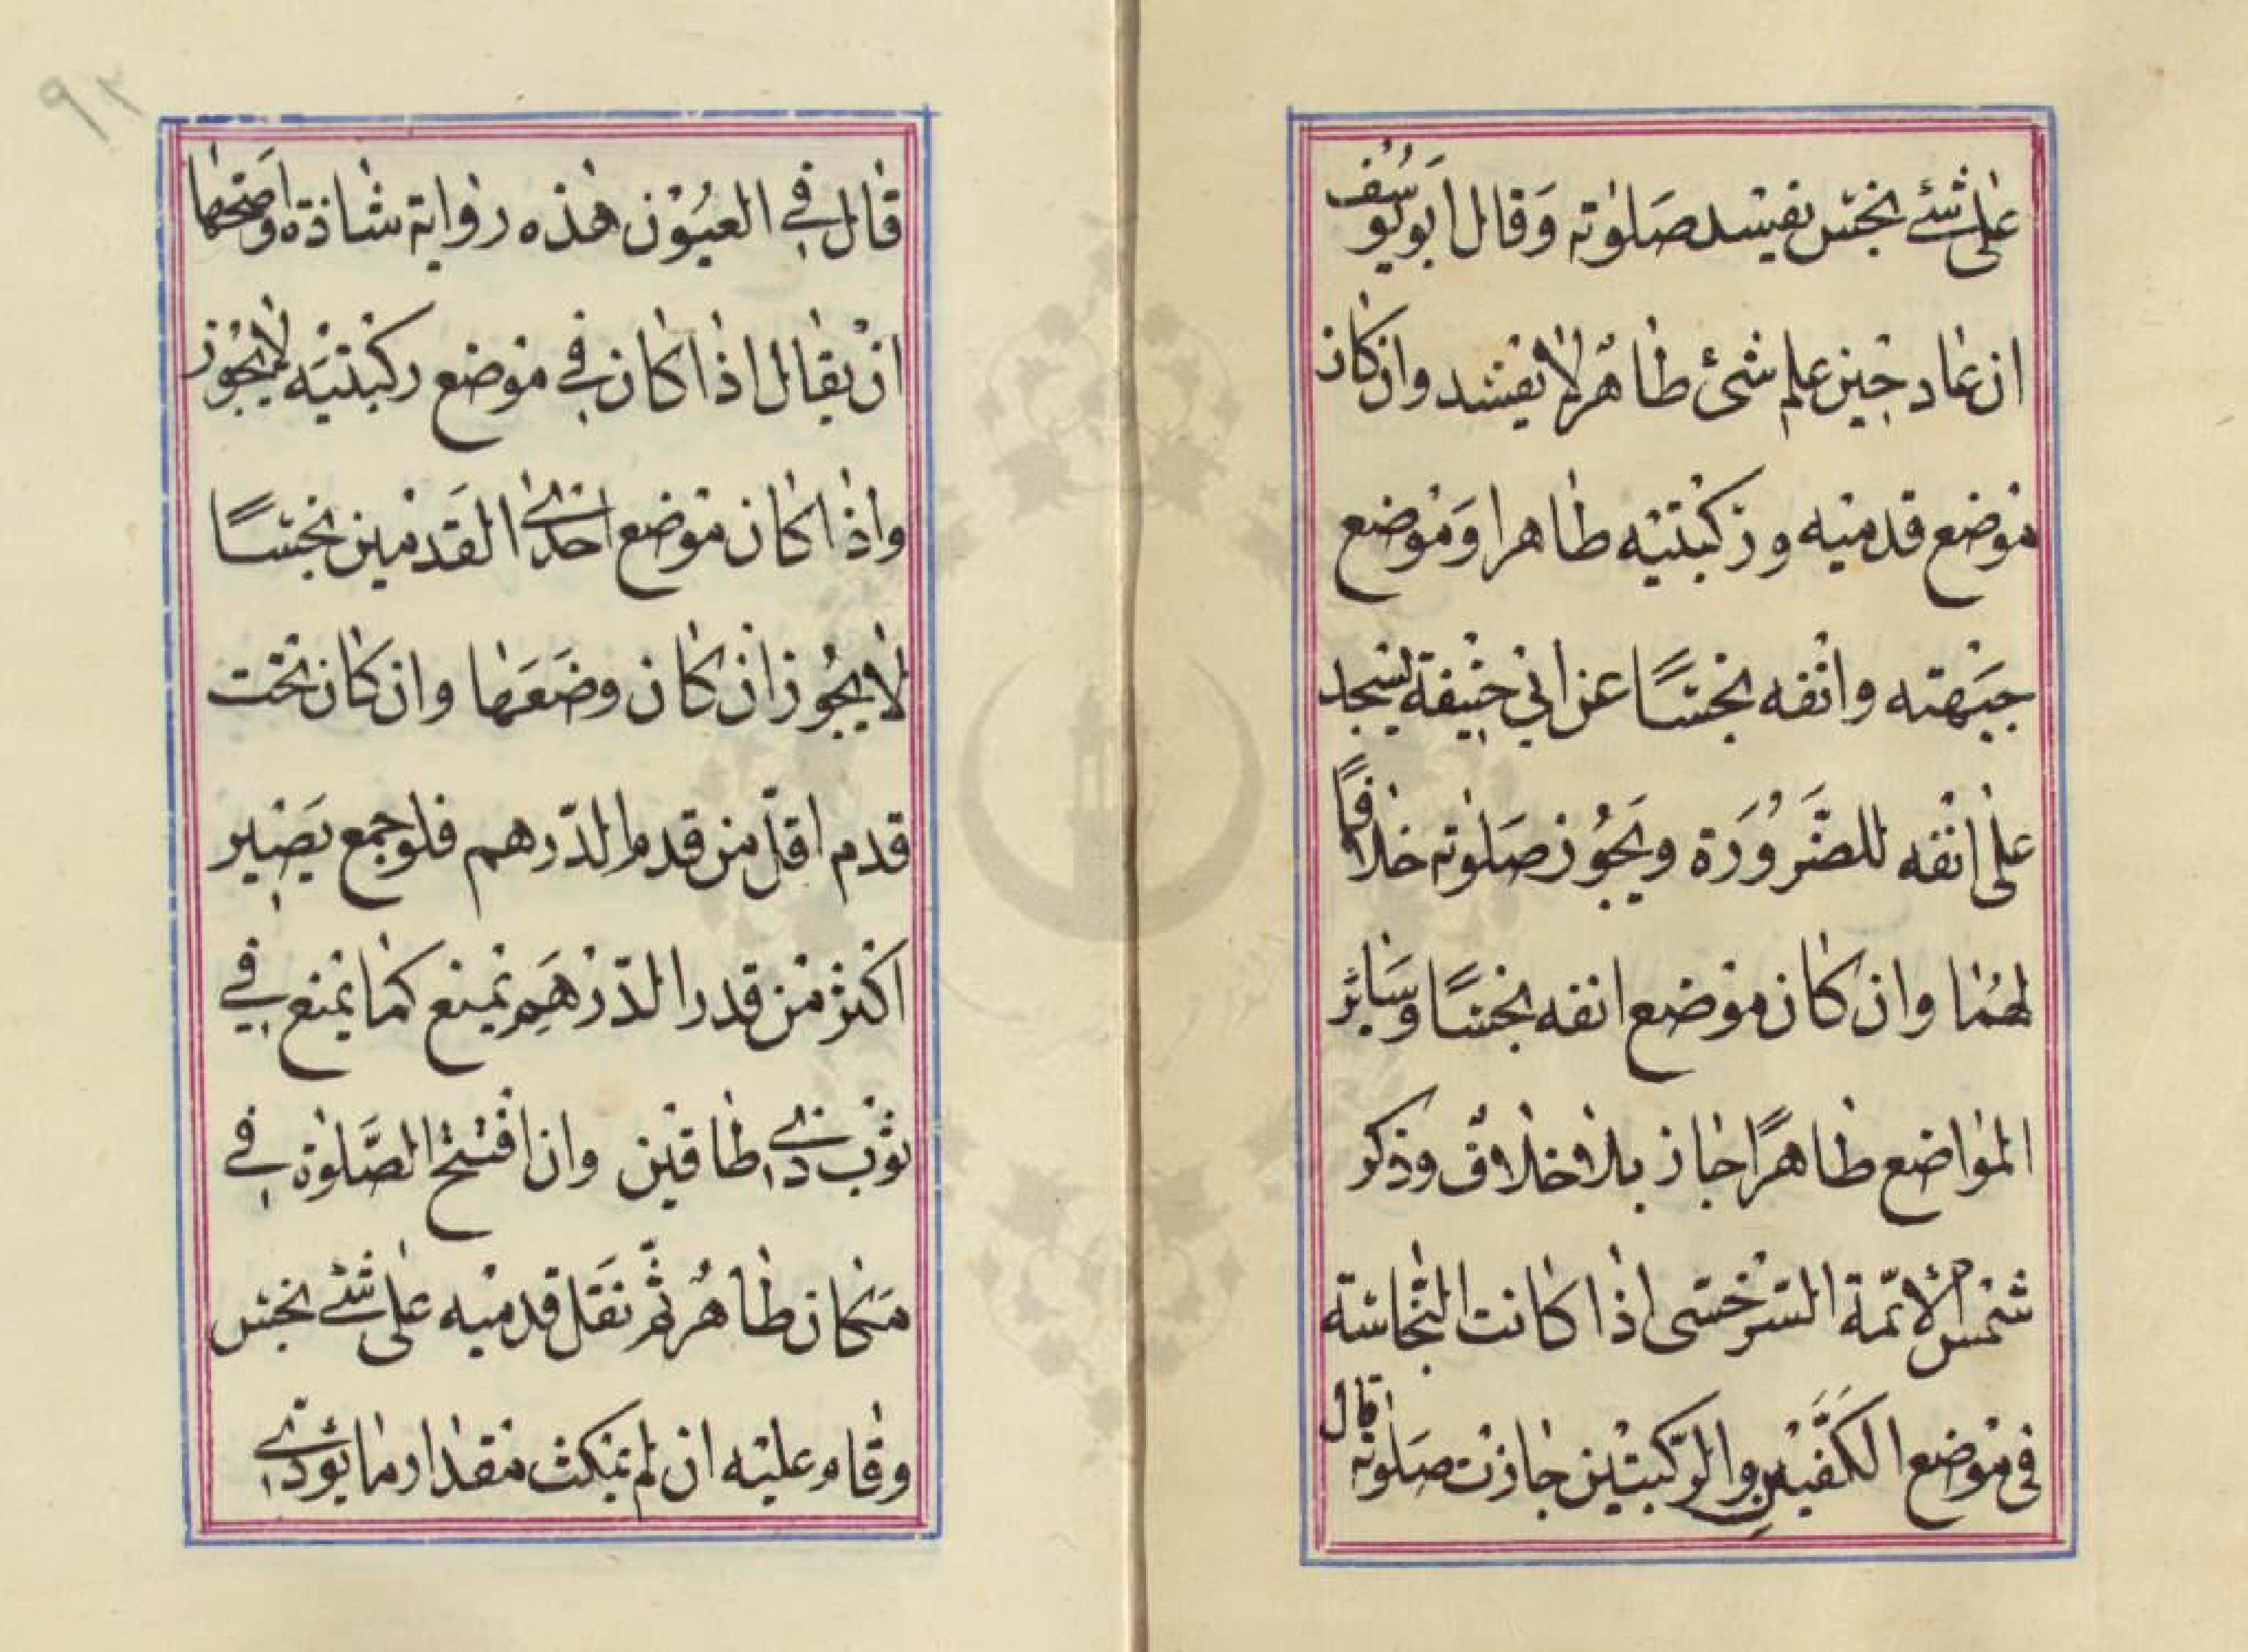 على شئ نجس يفسد صلوته وقال ابو يوسف
ان عاد حين علم شئ طاهر لا يفسد وان كان
موضع قدميه وركبتيه طاهرا وموضع
جبهته وانفه نجسًا عن ابي حنيفة يسجد
على انفه للضرورة ويجوز صلوته خلافًا
لهما وان كان موضع انفه نجسًا وسائر
المواضع طاهرًا جاز بلا خلاف وذكر
شمس الأئمة السرخسى اذا كانت النجاسة
فى موضع الكفين والركبتين جازت صلوته قال
٩٢
قال في العيون هذه رواية شاذة واصحها
ان يقال اذا كان في موضع ركبتيه لا يجوز
واذا كان موضع احدى القدمين نجسًا
لا يجوز ان كان وضعها وان كان تحت
قدم اقل من قدر الدرهم فلو جمع يصير
اكثر من قدر الدرهم يمنع كما يمنع في
ثوب ذي طاقين وان افتتح الصلوة في
مكان طاهر ثم نقل قدميه على شئ نجس
وقام عليه ان لم يمكث مقدار ما يؤدي